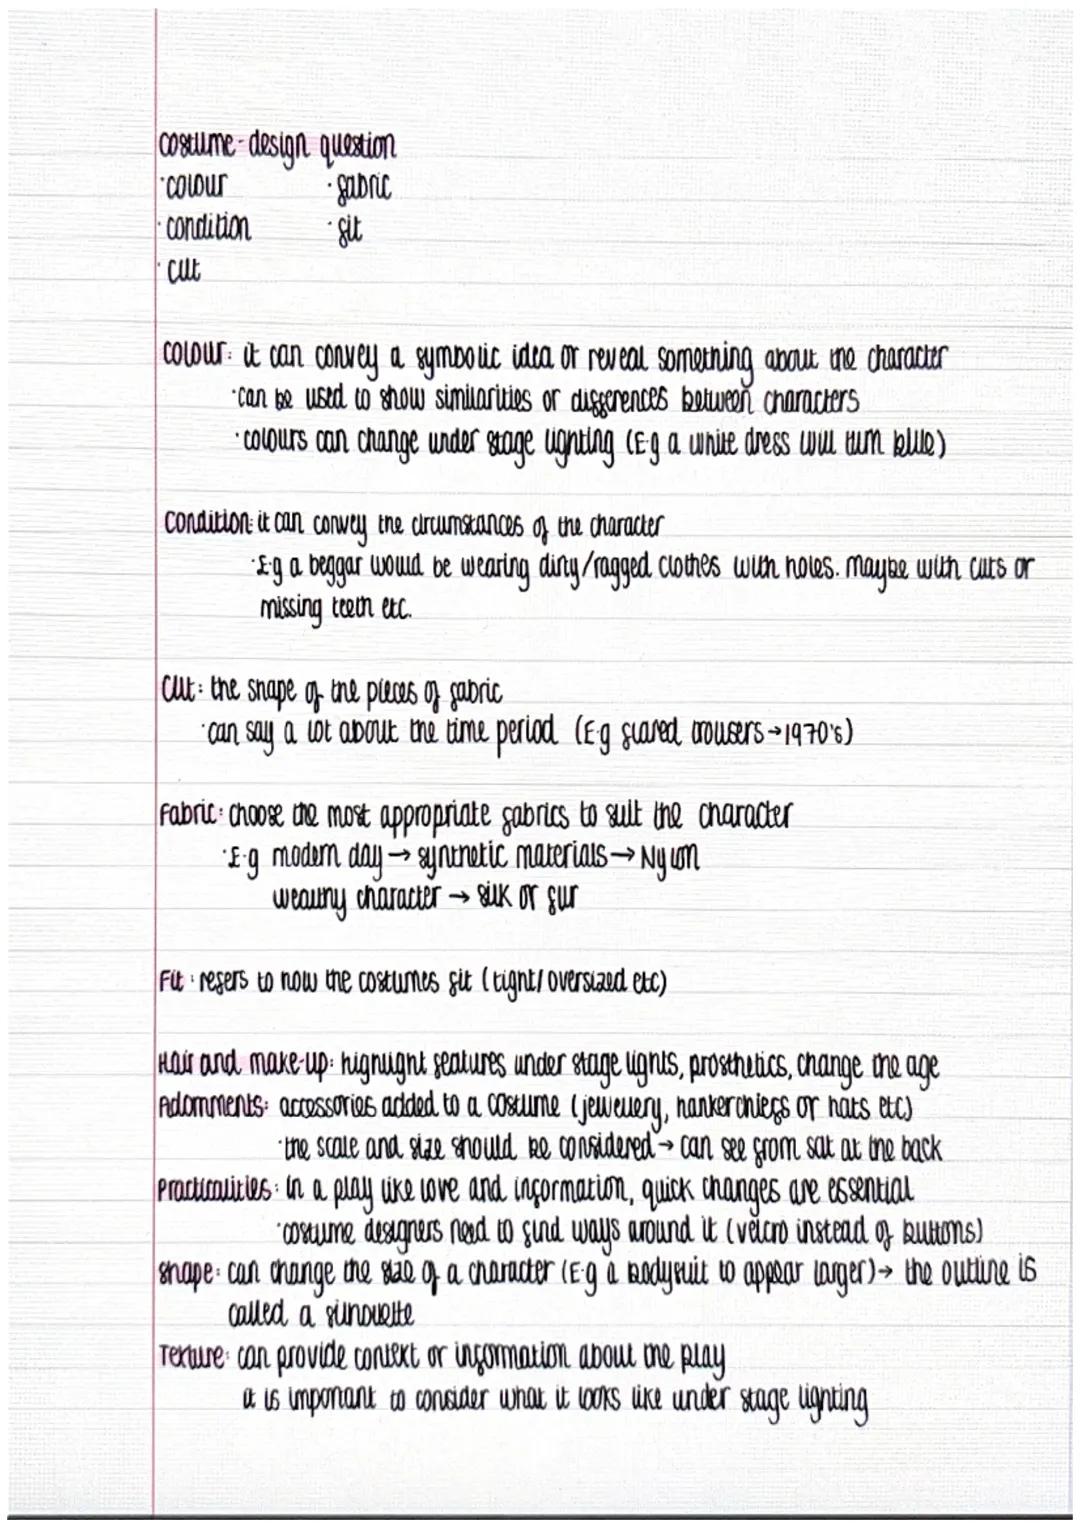 costume-design question
·colour ·fabric
·condition ·fit
·cut
colour: it can convey a symbolic idea or reveal something about the character
·can be used to show similarities or differences between characters
·colours can change under stage lighting (E.g a white dress will turn blue)
Condition: it can convey the circumstances of the character
·E.g a beggar would be wearing dirty/ragged clothes with holes. maybe with cuts or
missing teeth etc.
Cut: the shape of the pieces of fabric
·can say a lot about the time period (E.g flared trousers→1970's)
Fabric: choose the most appropriate fabrics to suit the character
·E.g modern day → synthetic materials → Nylon
wealthy character → silk or fur
Fit: refers to how the costumes fit (tight/oversized etc)
Hair and make-up: highlight features under stage lights, prosthetics, change the age
Adornments: accessories added to a costume (jewellery, hankerchiefs or hats etc)
·the scale and size should be considered → can see from sat at the back
Practicalities: In a play like love and information, quick changes are essential
·costume designers need to find ways around it (velcro instead of buttons)
shape: can change the size of a character (E.g a bodysuit to appear larger)→ the outline is
called a silhouette
Texture: can provide context or information about the play
it is important to consider what it looks like under stage lighting